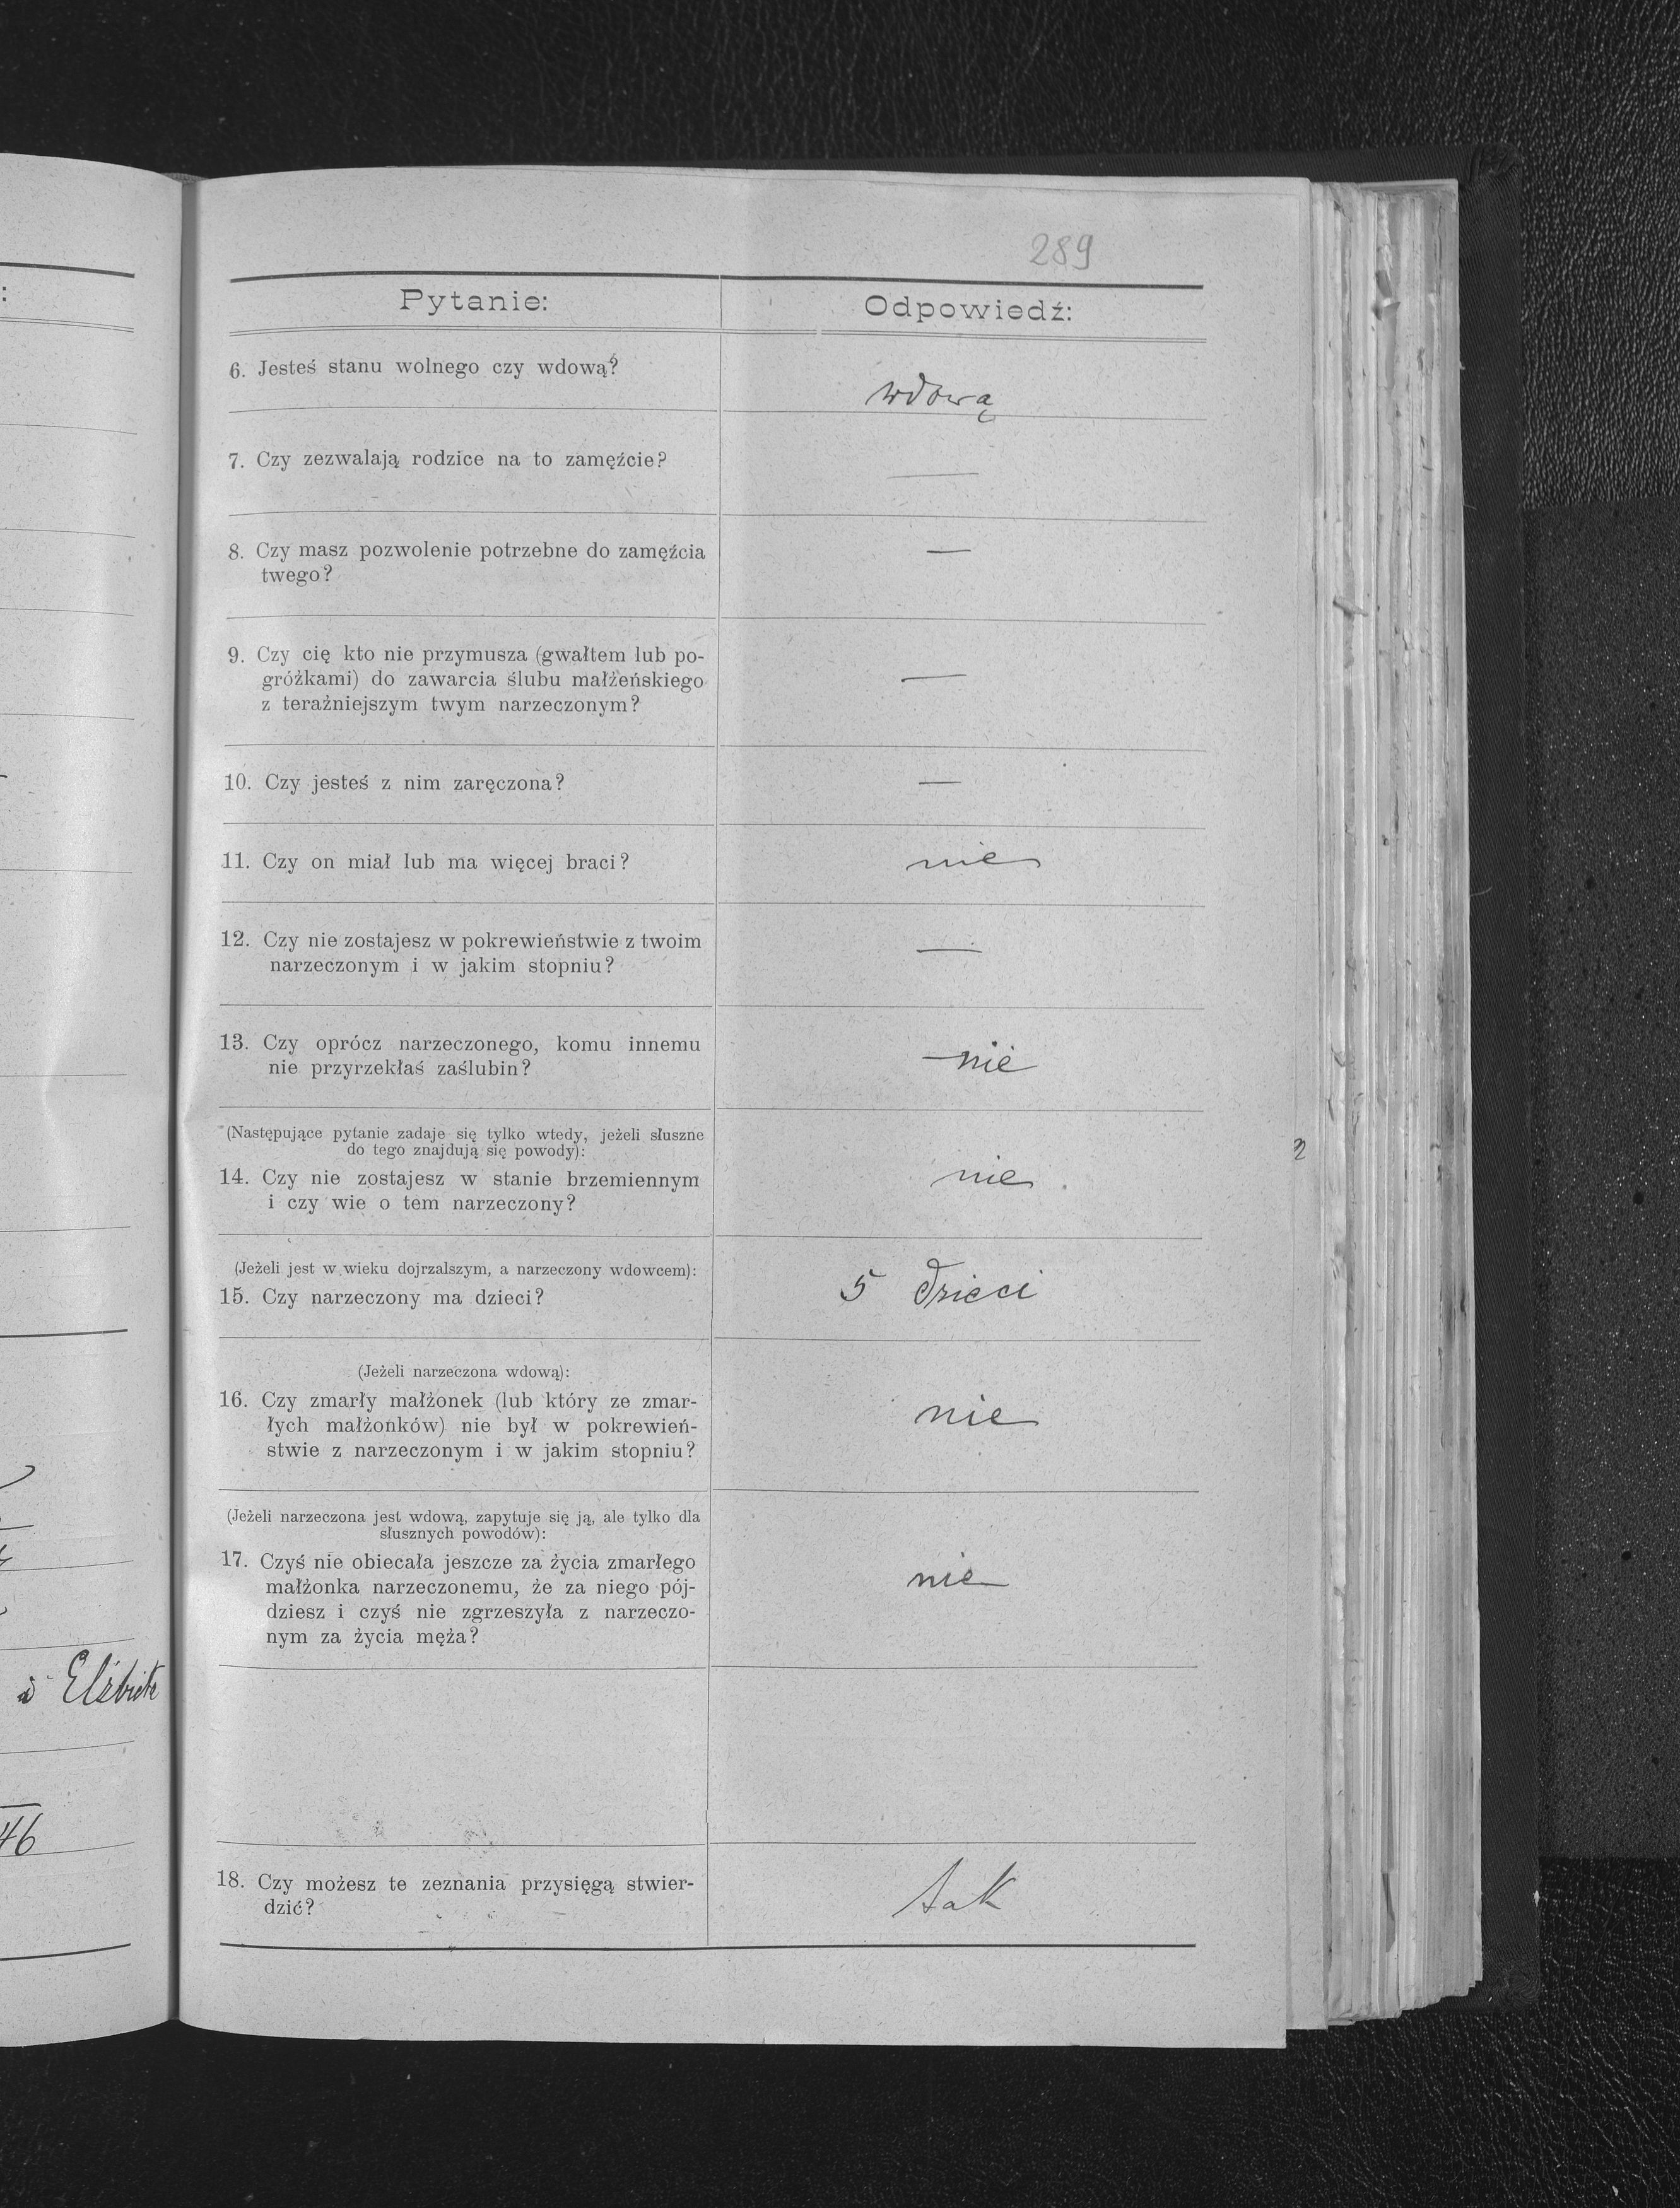 289
Pytanie:
Odpowiedź:
6. Jesteś stanu wolnego czy wdową?
wdową
7. Czy zezwalają rodzice na to zamęźcie?
—
8. Czy masz pozwolenie potrzebne do zamęźcia
twego?
—
9. Czy cię kto nie przymusza (gwałtem lub po-
gróżkami) do zawarcia ślubu małżeńskiego
z teraźniejszym twym narzeczonym?
—
10. Czy jesteś z nim zaręczona?
—
11. Czy on miał lub ma więcej braci?
nie
12. Czy nie zostajesz w pokrewieństwie z twoim
narzeczonym i w jakim stopniu?
—
13. Czy oprócz narzeczonego, komu innemu
nie przyrzekłaś zaślubin?
—nie
(Następujące pytanie zadaje się tylko wtedy, jeżeli słuszne
do tego znajdują się powody):
14. Czy nie zostajesz w stanie brzemiennym
i czy wie o tem narzeczony?
nie
(Jeżeli jest w wieku dojrzalszym, a narzeczony wdowcem):
15. Czy narzeczony ma dzieci?
5 dzieci
(Jeżeli narzeczona wdową):
16. Czy zmarły małżonek (lub który ze zmar-
łych małżonków) nie był w pokrewień-
stwie z narzeczonym i w jakim stopniu?
nie
(Jeżeli narzeczona jest wdową, zapytuje się ją, ale tylko dla
słusznych powodów):
17. Czyś nie obiecała jeszcze za życia zmarłego
małżonka narzeczonemu, że za niego pój-
dziesz i czyś nie zgrzeszyła z narzeczo-
nym za życia męża?
nie
18. Czy możesz te zeznania przysięgą stwier-
dzić?
tak
Elżbieta
46